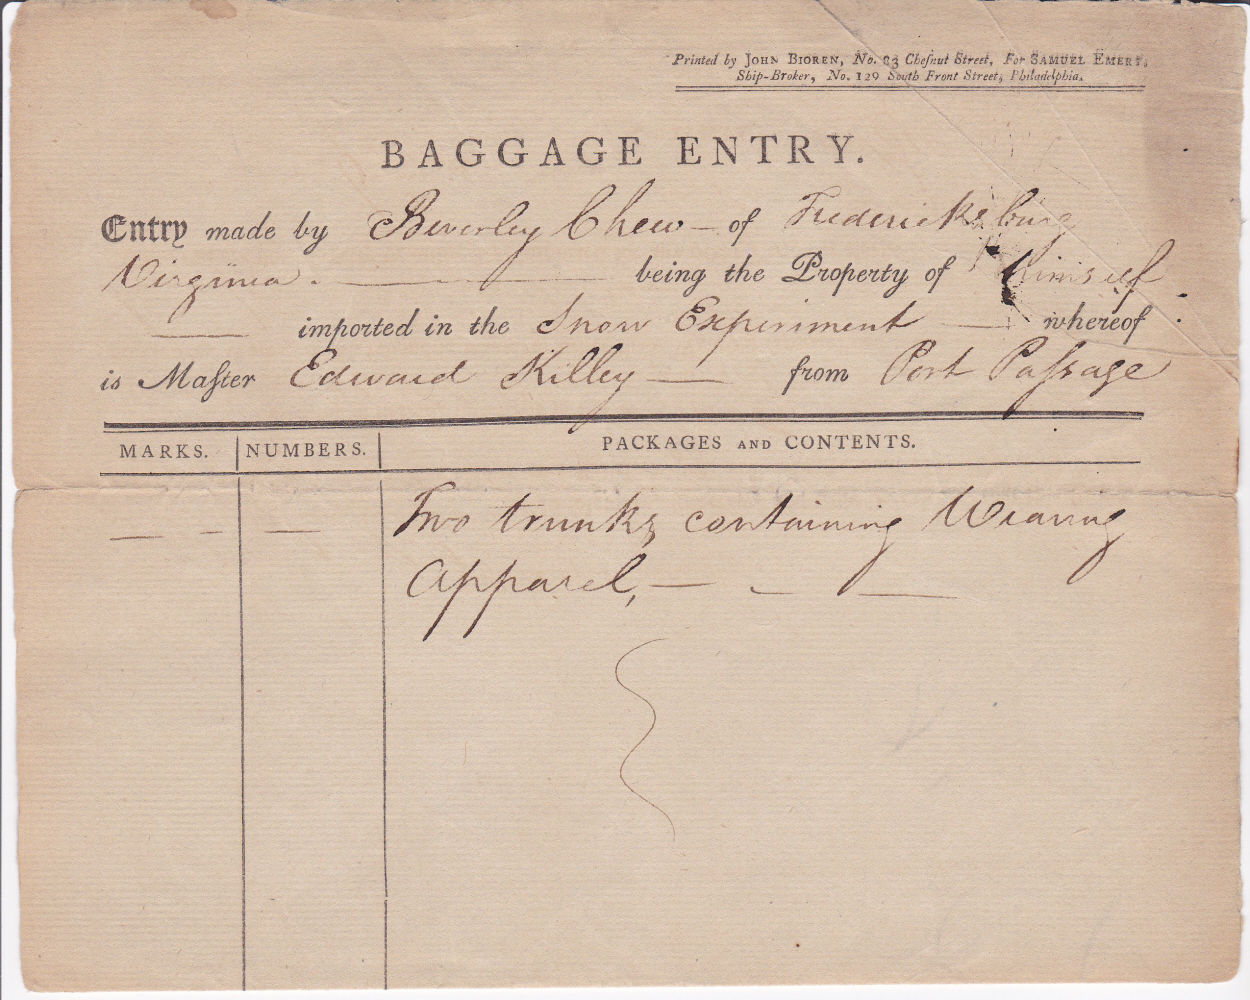 Printed by JOHN BIOREN, No. 83 Cheſnut Street, For SAMUEL EMERY,
Ship-Broker, No. 129 South Front Street, Philadelphia.
BAGGAGE ENTRY.
Entry made by Beverley Chew — of Fredericksburg
Virginia. — being the Property of himself
— imported in the Snow Experiment — whereof
is Maſter Edward Killey — from Port Paſsage
MARKS. NUMBERS. PACKAGES AND CONTENTS.
— — — Two trunks containing Wearing
apparel, — — —